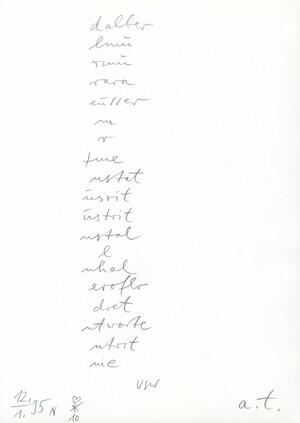 dalber
rara
eüsser
m
r
tme
ustat
üsrit
üstrit
ustal
l
uhal
eroflo
dret
utworte
utrit
nie
usw
12./1.95 N 10
a.t.